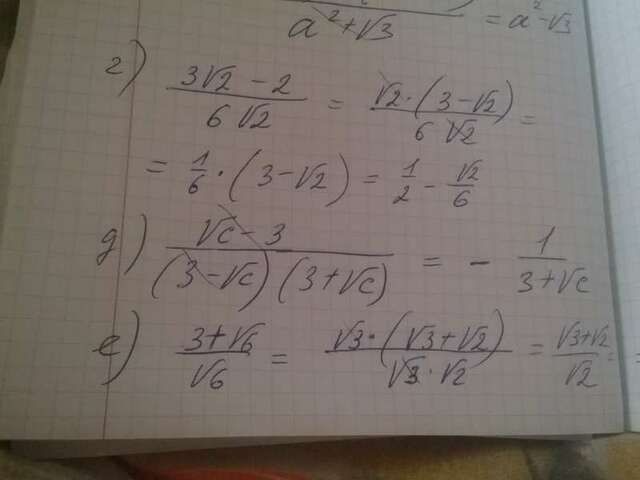 a² + √3 = a² - √3
г) (3√2 - 2) / (6√2) = (√2 · (3 - √2)) / (6√2) =
= 1/6 · (3 - √2) = 1/2 - √2/6
д) (√c - 3) / ((3 - √c)(3 + √c)) = - 1 / (3 + √c)
е) (3 + √6) / √6 = (√3 · (√3 + √2)) / (√3 · √2) = (√3 + √2) / √2 =